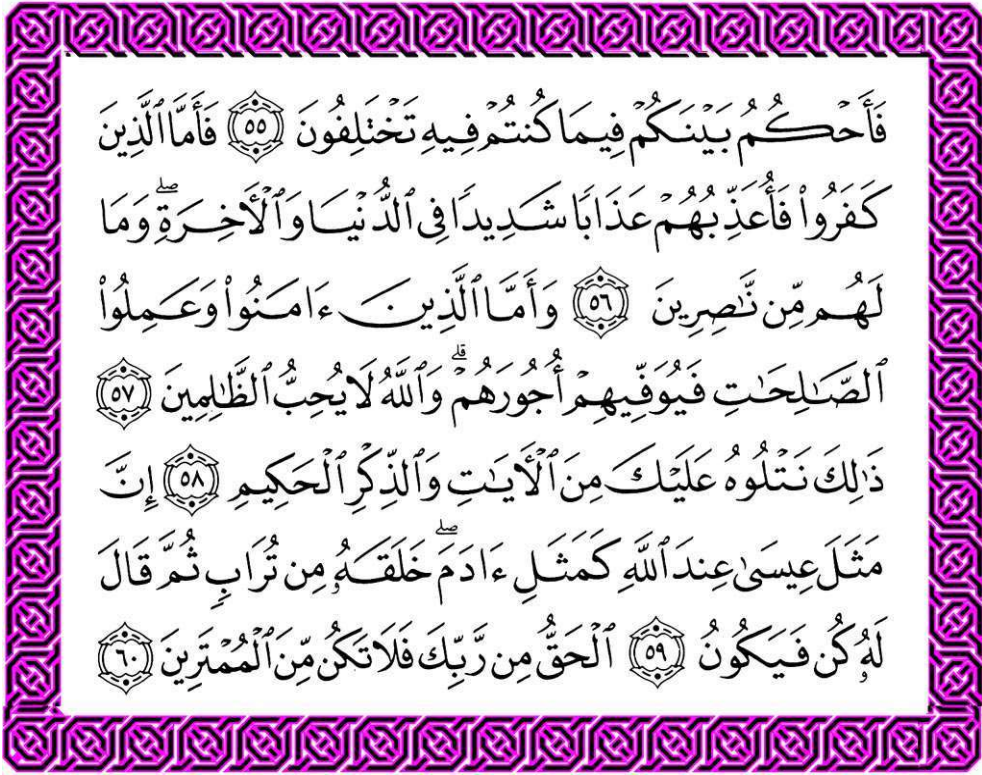 فَأَحْكُمُ بَيْنَكُمْ فِيمَا كُنتُمْ فِيهِ تَخْتَلِفُونَ ٥٥ فَأَمَّا ٱلَّذِينَ
كَفَرُوا۟ فَأُعَذِّبُهُمْ عَذَابًا شَدِيدًا فِى ٱلدُّنْيَا وَٱلْأَخِرَةِ ۖ وَمَا
لَهُم مِّن نَّـٰصِرِينَ ٥٦ وَأَمَّا ٱلَّذِينَ ءَامَنُوا۟ وَعَمِلُوا۟
ٱلصَّـٰلِحَـٰتِ فَيُوَفِّيهِمْ أُجُورَهُمْ ۗ وَٱللَّهُ لَا يُحِبُّ ٱلظَّـٰلِمِينَ ٥٧
ذَٰلِكَ نَتْلُوهُ عَلَيْكَ مِنَ ٱلْأَيَـٰتِ وَٱلذِّكْرِ ٱلْحَكِيمِ ٥٨ إِنَّ
مَثَلَ عِيسَىٰ عِندَ ٱللَّهِ كَمَثَلِ ءَادَمَ ۖ خَلَقَهُۥ مِن تُرَابٍ ثُمَّ قَالَ
لَهُۥ كُن فَيَكُونُ ٥٩ ٱلْحَقُّ مِن رَّبِّكَ فَلَا تَكُن مِّنَ ٱلْمُمْتَرِينَ ٦٠